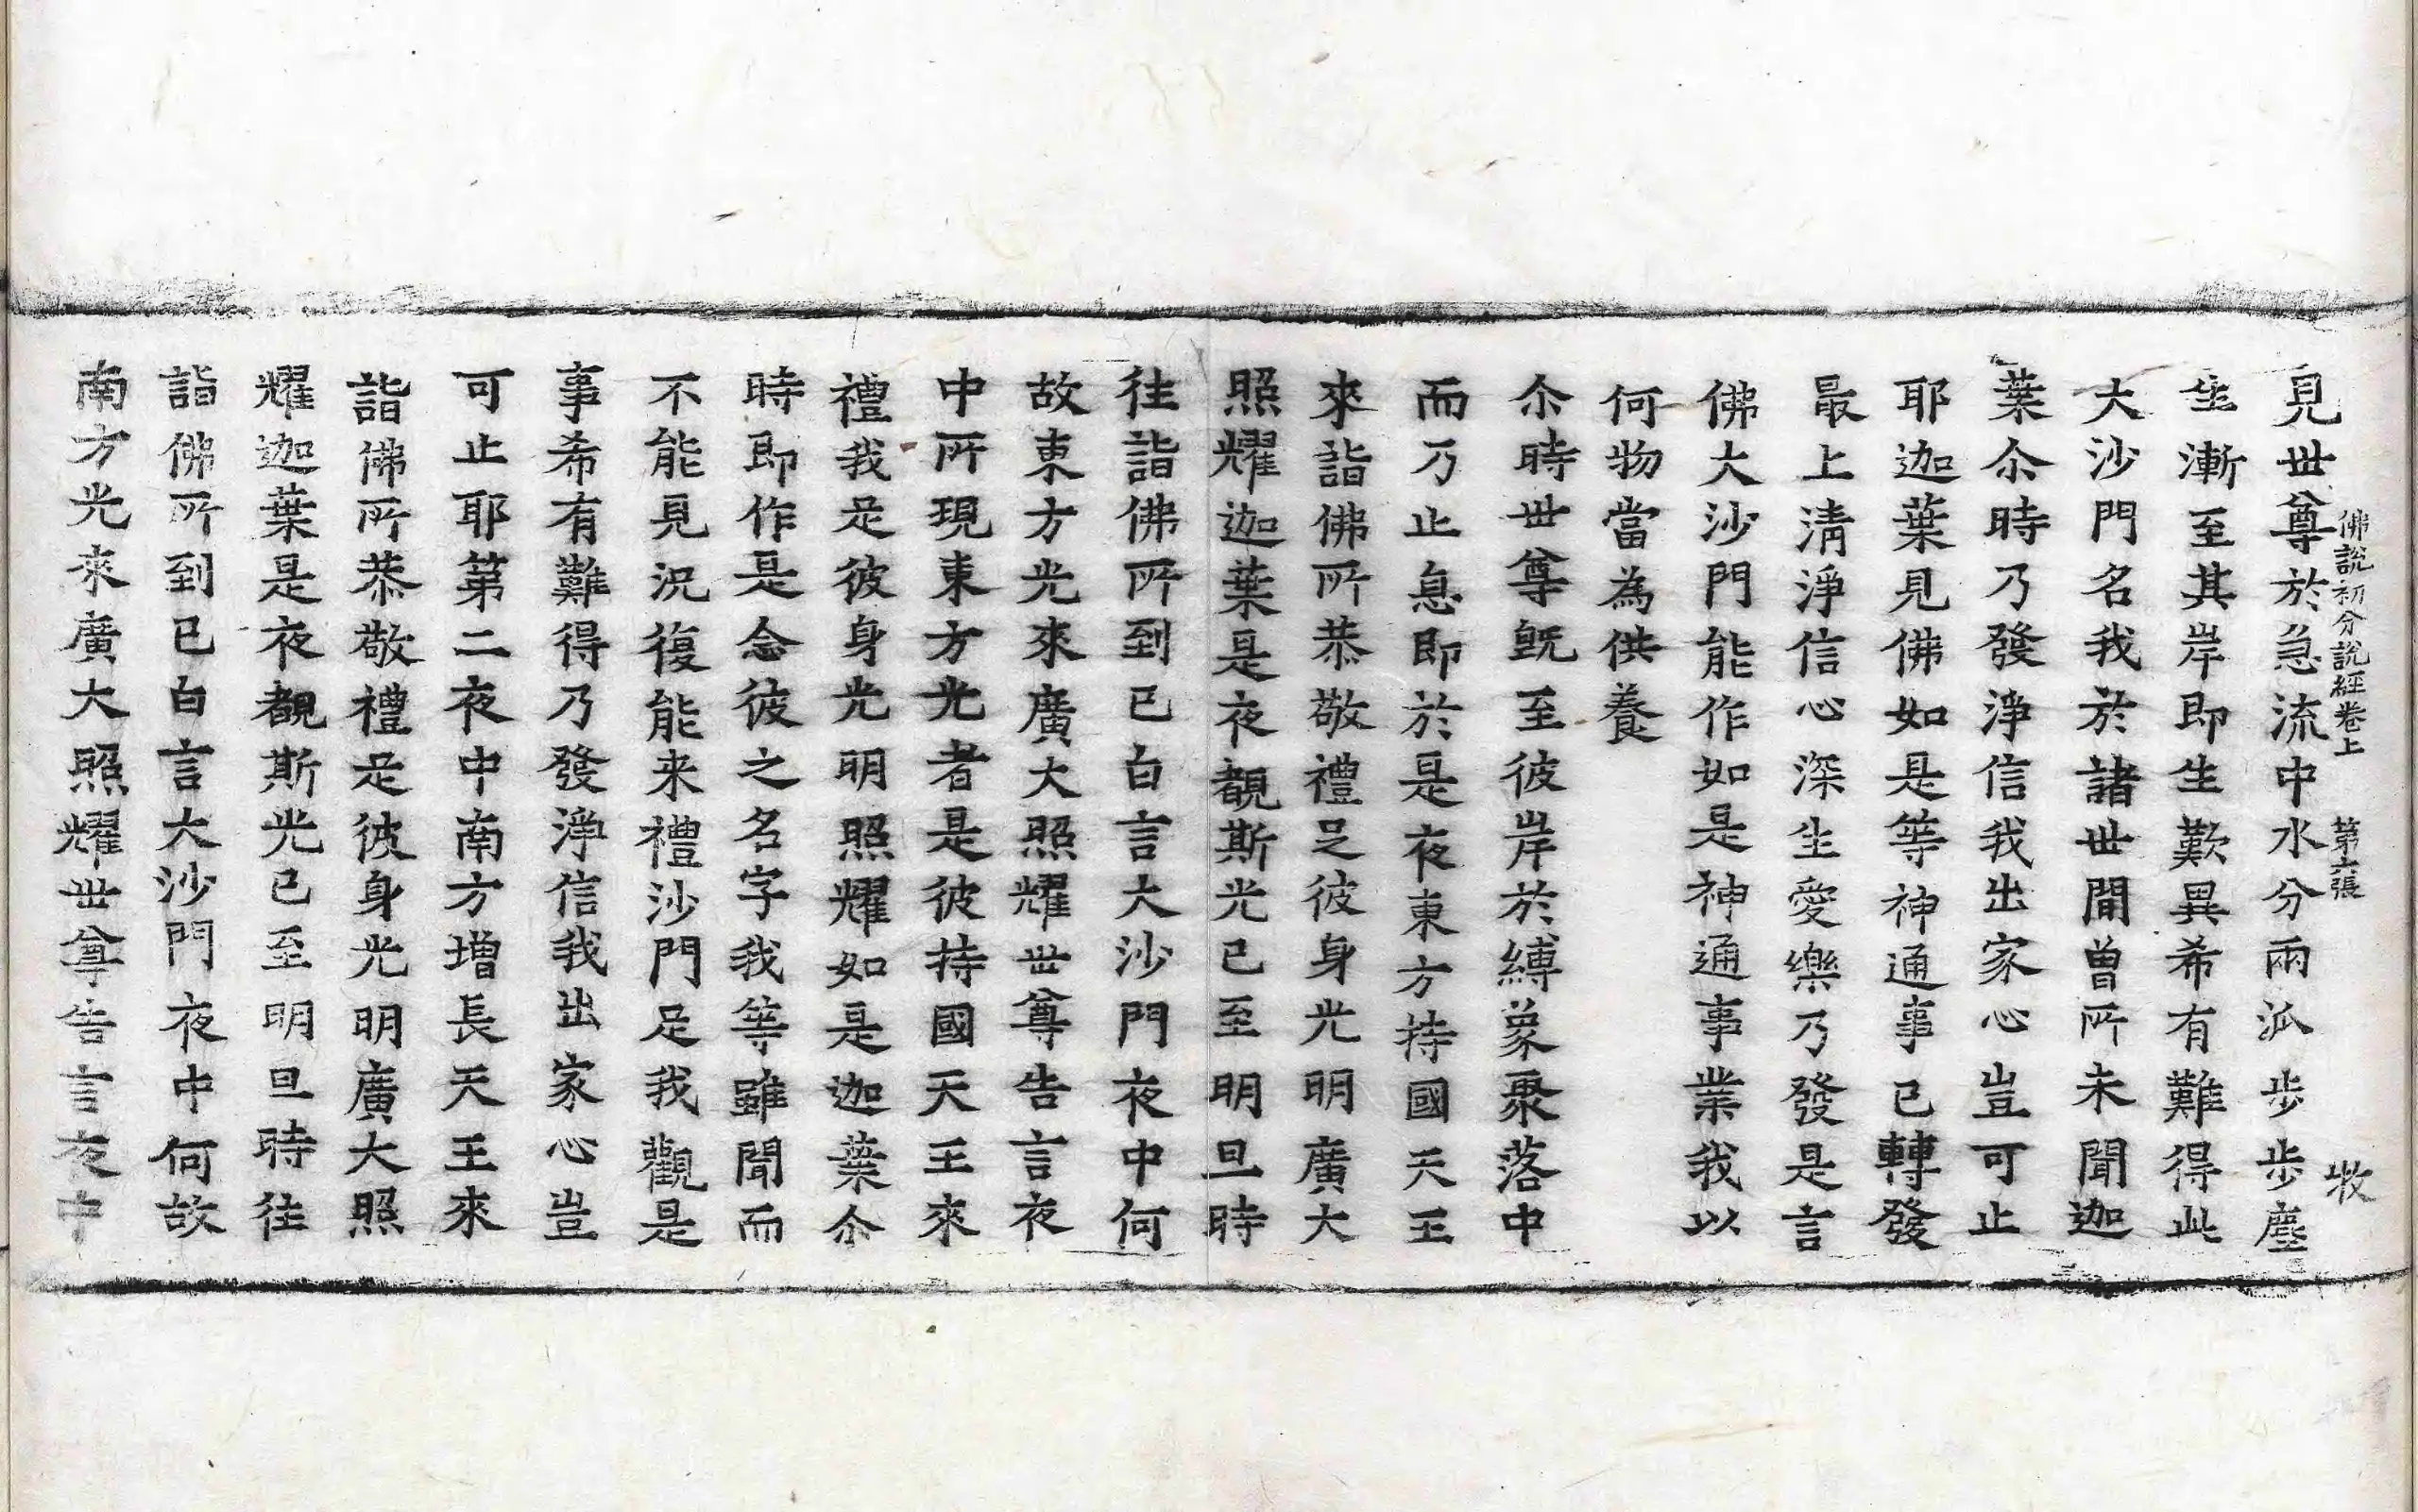 佛說初分說經卷上　第六張　牧
見世尊於急流中水分兩派步步塵
生漸至其岸即生歎異希有難得此
大沙門名我於諸世間曾所未聞迦
葉尒時乃發淨信我出家心豈可止
耶迦葉見佛如是等神通事已轉發
最上清淨信心深生愛樂乃發是言
佛大沙門能作如是神通事業我以
何物當為供養
尒時世尊旣至彼岸於縛蒙聚落中
而乃止息即於是夜東方持國天王
來詣佛所恭敬禮足彼身光明廣大
照耀迦葉是夜覩斯光已至明旦時
往詣佛所到已白言大沙門夜中何
故東方光來廣大照耀世尊告言夜
中所現東方光者是彼持國天王來
禮我足彼身光明照耀如是迦葉尒
時即作是念彼之名字我等雖聞而
不能見況復能来禮沙門足我觀是
事希有難得乃發淨信我出家心豈
可止耶第二夜中南方增長天王來
詣佛所恭敬禮足彼身光明廣大照
耀迦葉是夜覩斯光已至明旦時往
詣佛所到已白言大沙門夜中何故
南方光來廣大照耀世尊告言夜中